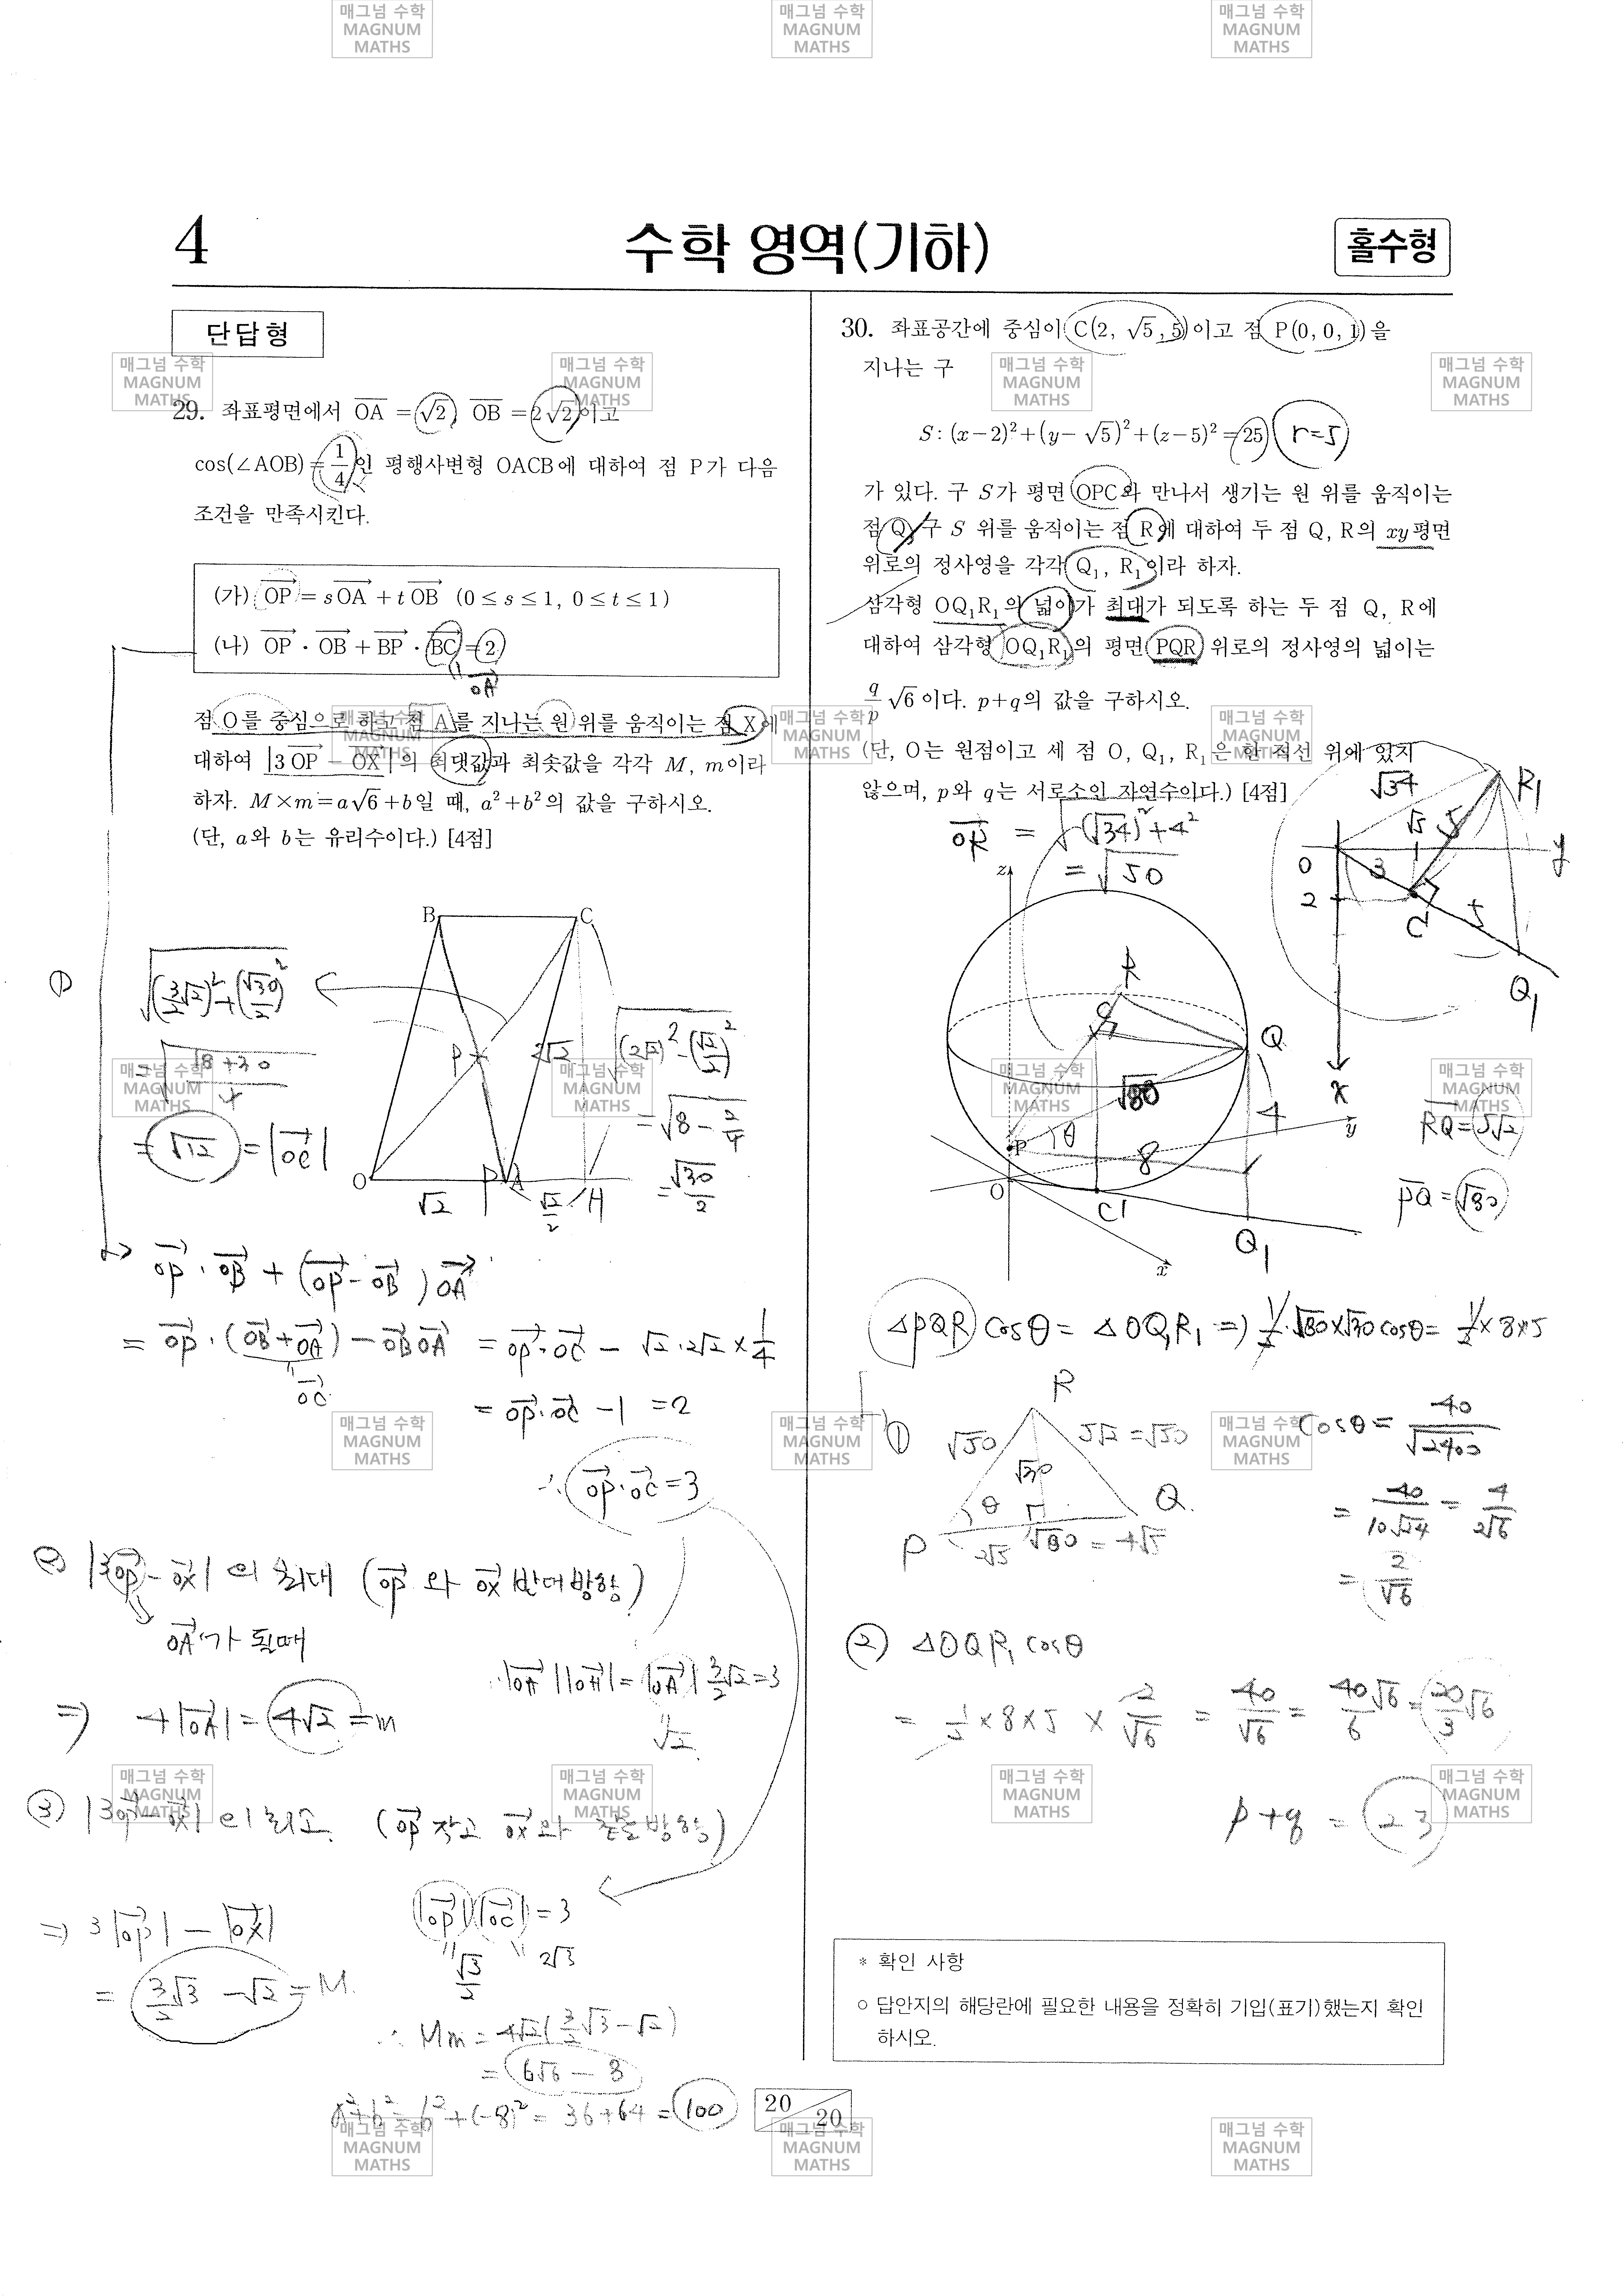 4
수학 영역(기하)
홀수형
단답형
29. 좌표평면에서 OA = √2, OB = 2√2 이고
cos(∠AOB) = 1/4 인 평행사변형 OACB에 대하여 점 P가 다음
조건을 만족시킨다.
(가) OP = sOA + tOB (0≤s≤1, 0≤t≤1)
(나) OP · OB + BP · BC = 2
OA
점 O를 중심으로 하고 점 A를 지나는 원 위를 움직이는 점 X에
대하여 |3OP − OX|의 최댓값과 최솟값을 각각 M, m이라
하자. M×m = a√6 + b일 때, a²+b²의 값을 구하시오.
(단, a와 b는 유리수이다.) [4점]
B C
①
√((3/2√2)²+(√30/2)²)
= √((18+30)/4)
= √12 = |OC|
P
2√2
√((2√2)²−(√2/2)²)
= √(8−2/4)
= √30/2
O √2 P A √2/2 H
→ OP · OB + (OP − OB) OA
= OP · (OB+OA) − OB OA = OP·OC − √2 · 2√2 × 1/4
OC
= OP·OC − 1 = 2
∴ OP·OC = 3
② |3OP − OX| 의 최대 (OP 와 OX 반대방향)
OA가 될때
|OA||OH| = |OA| 3/2√2 = 3
√2
⇒ 4|OA| = 4√2 = m
③ |3OP − OX| 의 최소. (OP 작고 OX와 같은방향)
|OP||OC| = 3
√3/2 2√3
⇒ 3|OP| − |OX|
= 3/2√3 − √2 = M.
∴ Mm = 4√2(3/2√3 − √2)
= 6√6 − 8
a²+b² = 6²+(−8)² = 36+64 = 100
30. 좌표공간에 중심이 C(2, √5, 5)이고 점 P(0, 0, 1)을
지나는 구
S : (x−2)²+(y−√5)²+(z−5)² = 25 r=5
가 있다. 구 S가 평면 OPC와 만나서 생기는 원 위를 움직이는
점 Q, 구 S 위를 움직이는 점 R에 대하여 두 점 Q, R의 xy평면
위로의 정사영을 각각 Q₁, R₁이라 하자.
삼각형 OQ₁R₁의 넓이가 최대가 되도록 하는 두 점 Q, R에
대하여 삼각형 OQ₁R₁의 평면 PQR 위로의 정사영의 넓이는
q/p √6 이다. p+q의 값을 구하시오.
(단, O는 원점이고 세 점 O, Q₁, R₁은 한 직선 위에 있지
않으며, p와 q는 서로소인 자연수이다.) [4점]
OR = √((√34)²+4²)
= √50
√34 R₁
√5 5
O 3 y
2 C' 5
Q₁
x
z
R
C
Q
√80
4
P θ
8
y
O
C'
Q₁
x
RQ = 5√2
PQ = √80
△PQR cosθ = △OQ₁R₁ ⇒ 1/2·√80×√30 cosθ = 1/2×8×5
①
R
√50 5√2 = √50
√30
θ
P Q
2√5 √80 = 4√5
cosθ = 40/√2400
= 40/10√24 = 4/2√6
= 2/√6
② △OQ₁R₁ cosθ
= 1/2×8×5 × 2/√6 = 40/√6 = 40√6/6 = 20/3 √6
p+q = 23
* 확인 사항
○ 답안지의 해당란에 필요한 내용을 정확히 기입(표기)했는지 확인
하시오.
20 20
매그넘 수학
MAGNUM
MATHS